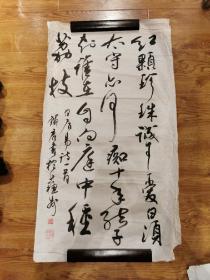 红颗珍珠诚可爱白须
太守亦何痴十年结子
知谁在自向庭中种
荔枝
白居易诗一首